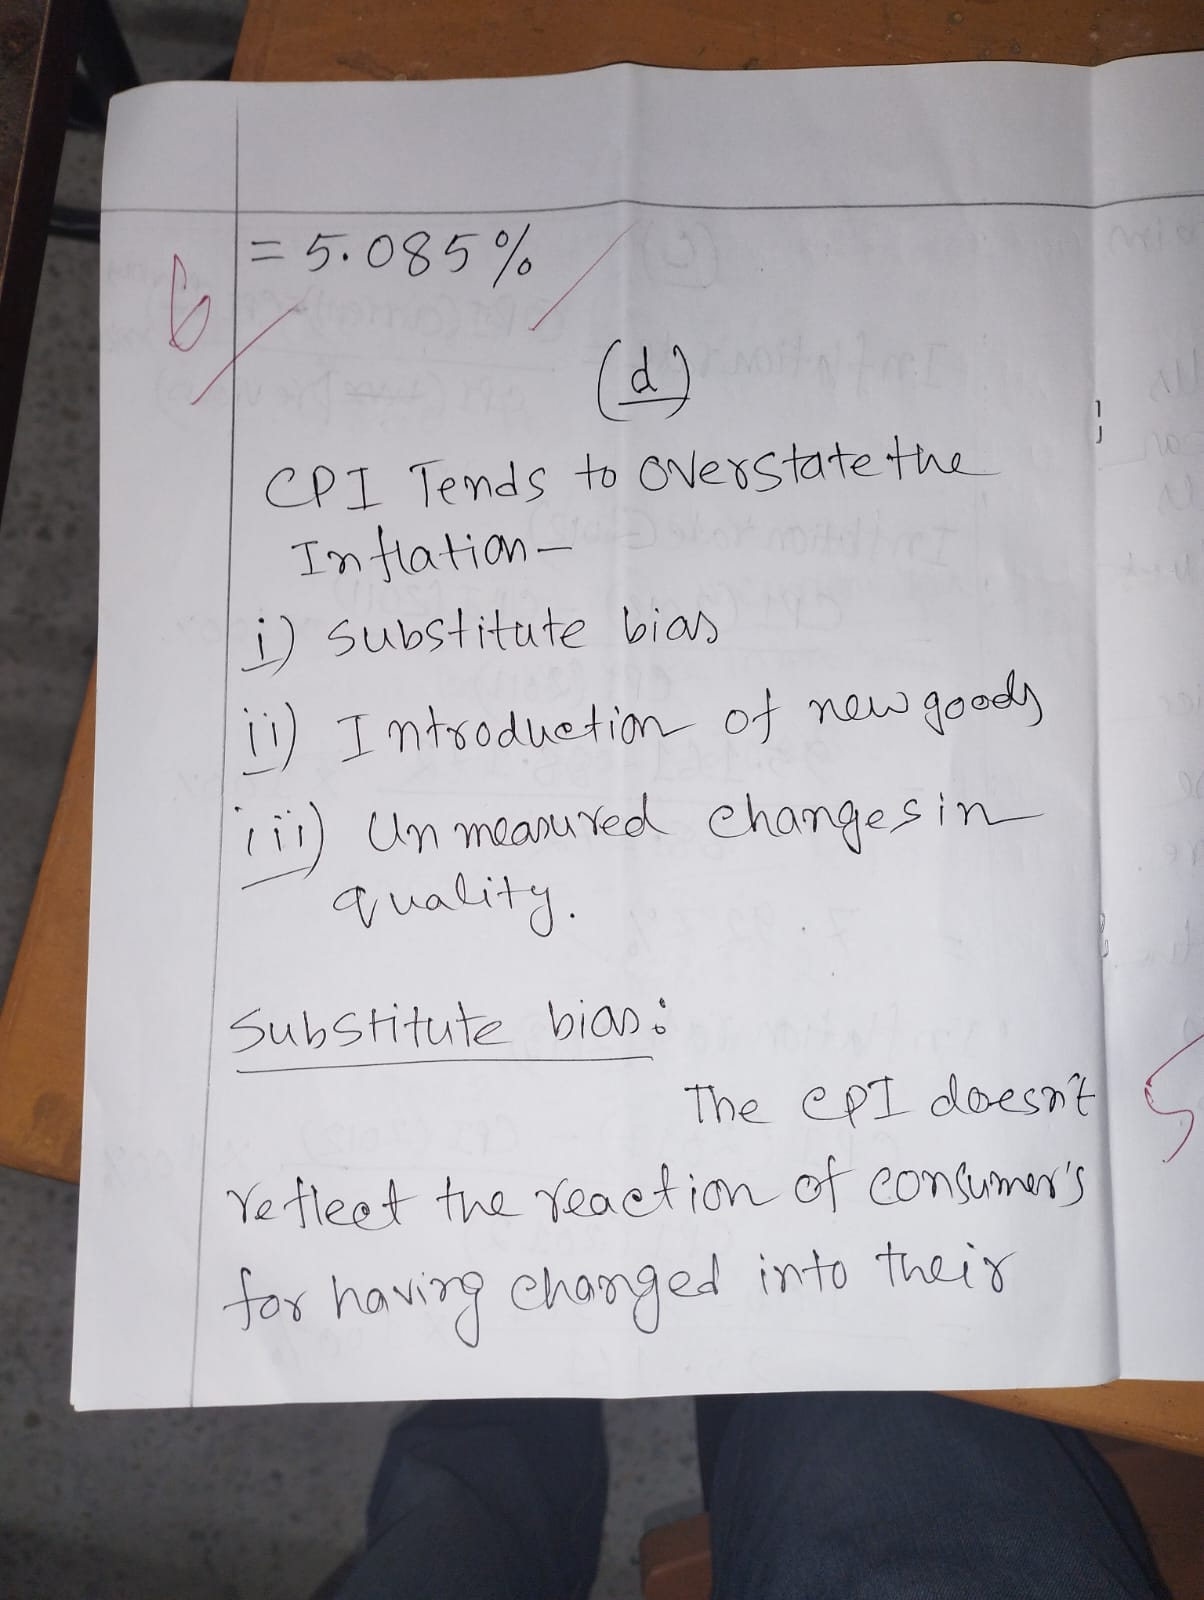 = 5.085%
6
(d)
CPI Tends to overstate the
Inflation -
i) substitute bias
ii) Introduction of new goods
iii) Unmeasured changes in
quality.
Substitute bias:
The CPI doesn't
reflect the reaction of consumer's
for having changed into their
5